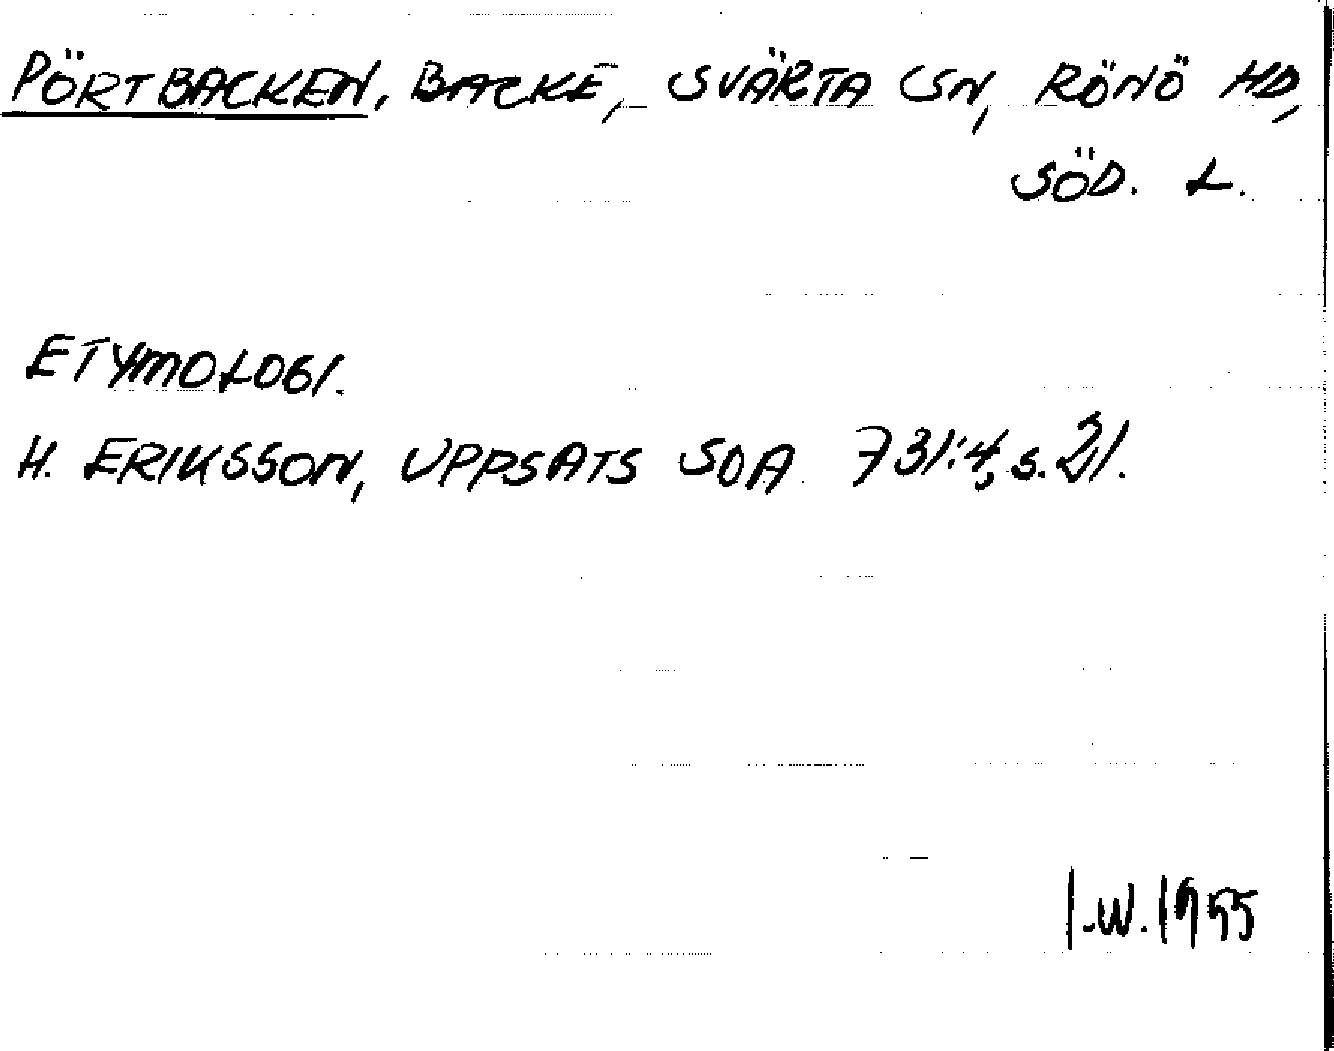 PÖRTBACKEN, BACKE, SVÄRTA SN, RÖNÖ HD,
SÖD. L.
ETYMOLOGI.
H. ERIKSSON, UPPSATS SOA 731:4, s. 21.
I.W. 1955